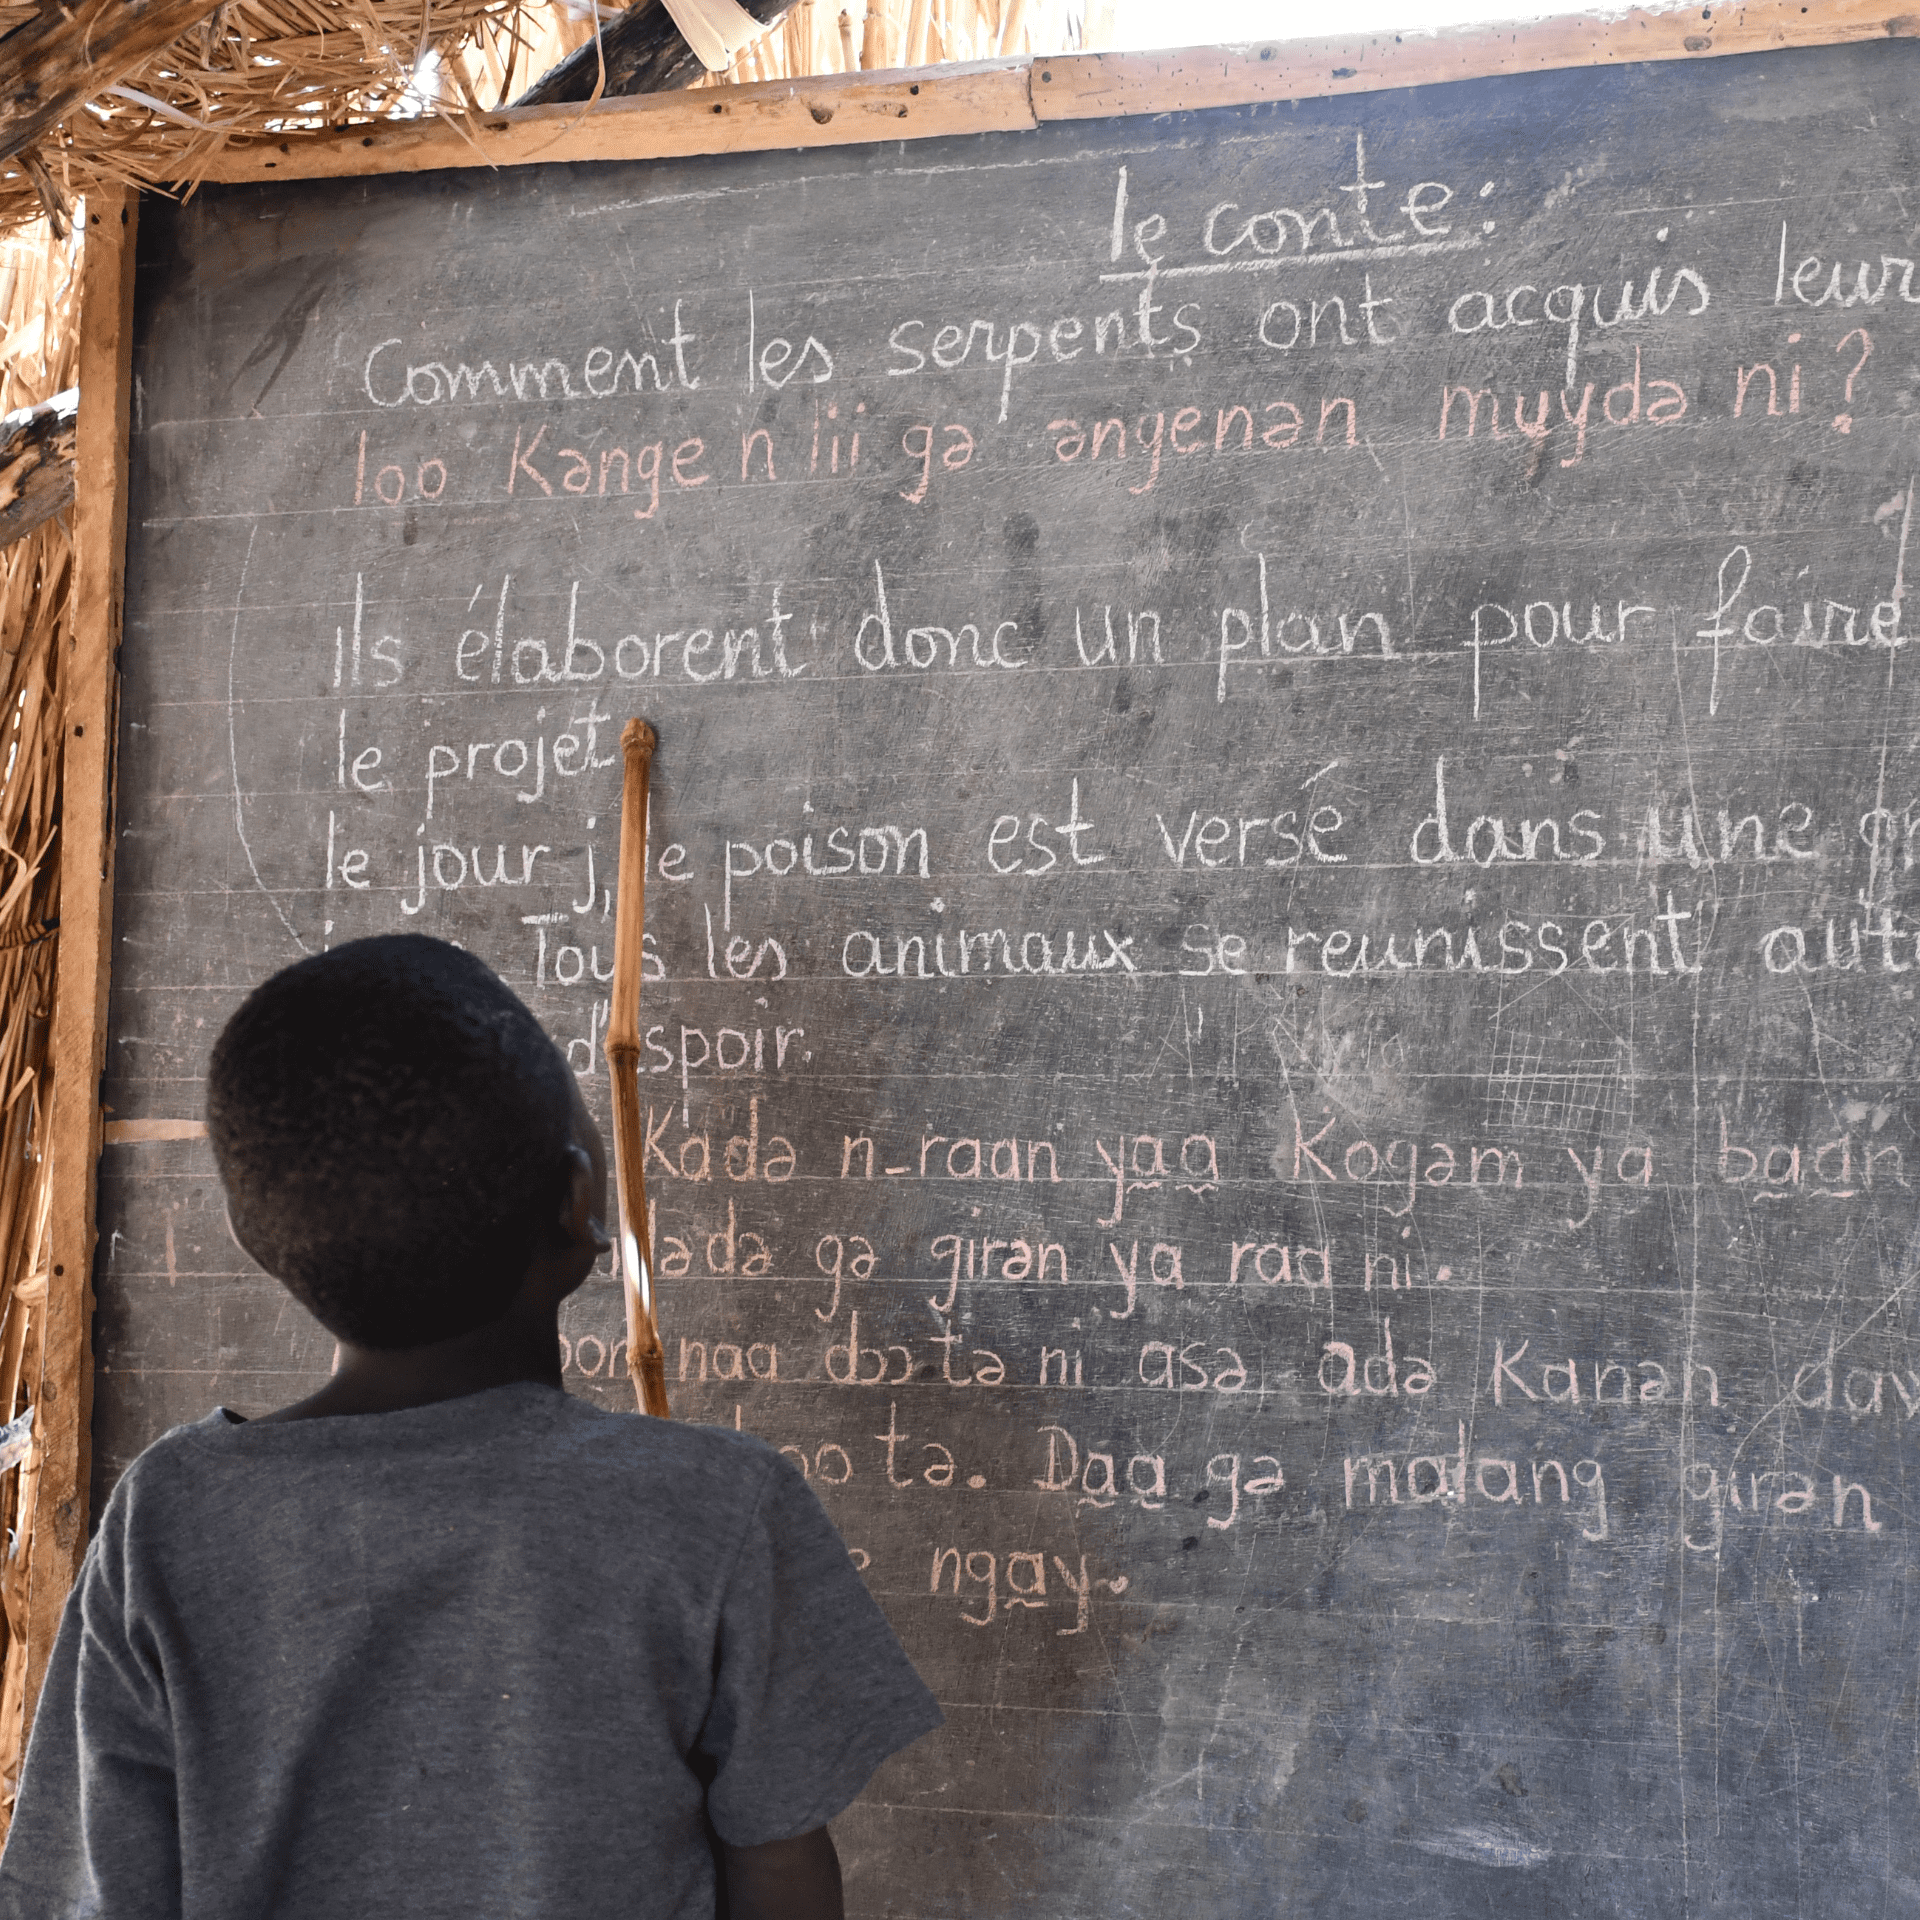 le conte :
Comment les serpents ont acquis leur
loo Kəngə n lii gə əngenən mụyda ni ?
Ils élaborent donc un plan pour faire
le projet
le jour j, le poison est versé dans une
Tous les animaux se reunissent
d'espoir.
Kadə n-raan ya̰a̰ Kogəm ya ba̰a̰n
gə girən ya rad ni.
naa dɔɔ tə ni asə adə Kanən
tə. Da̰a̰ gə malang girən
nga̰y.